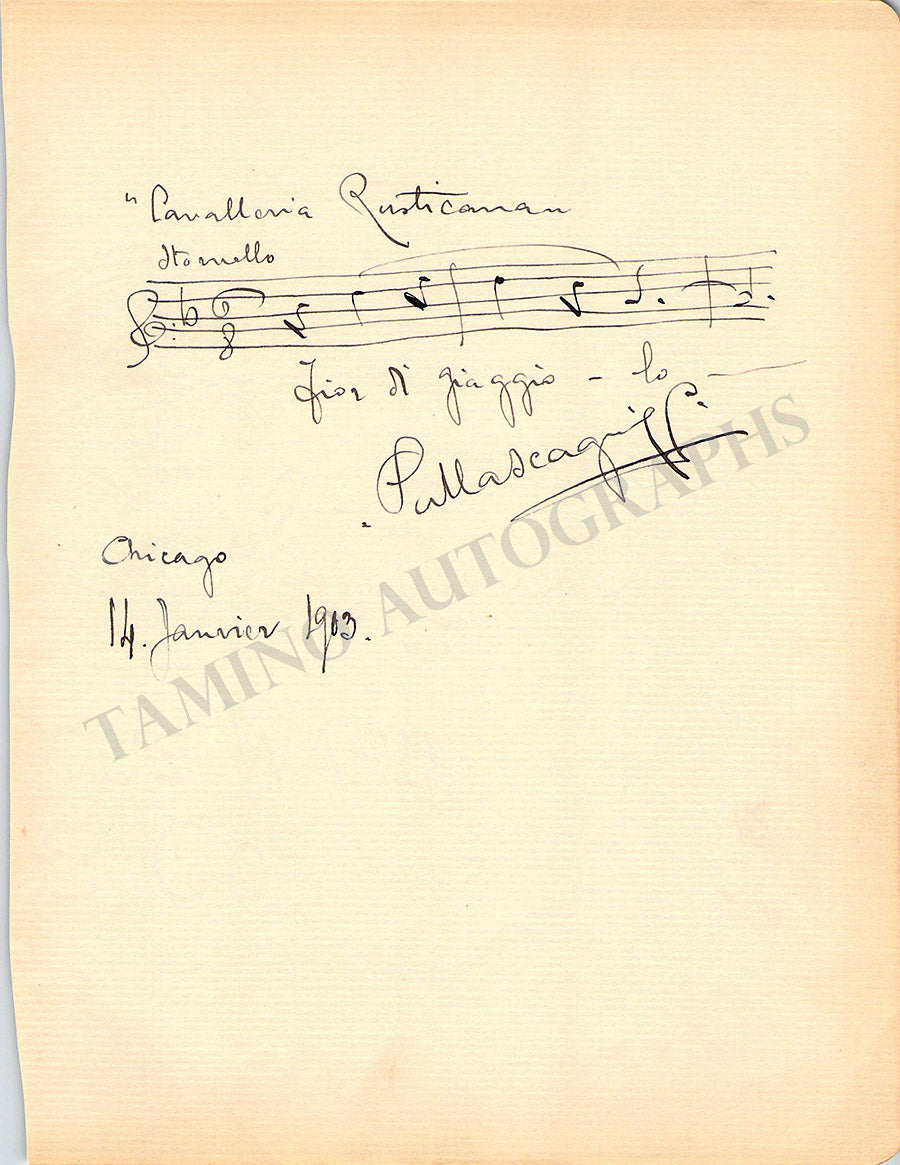 "Cavalleria Rusticana"
Stornello
6
8
Fior di giaggio - lo
P. Mascagni
Chicago
14. Janvier 1903.
TAMINO AUTOGRAPHS